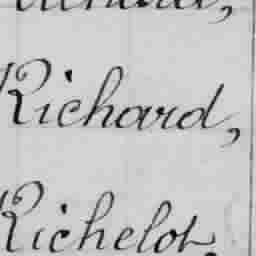 Richard,
Richelot,